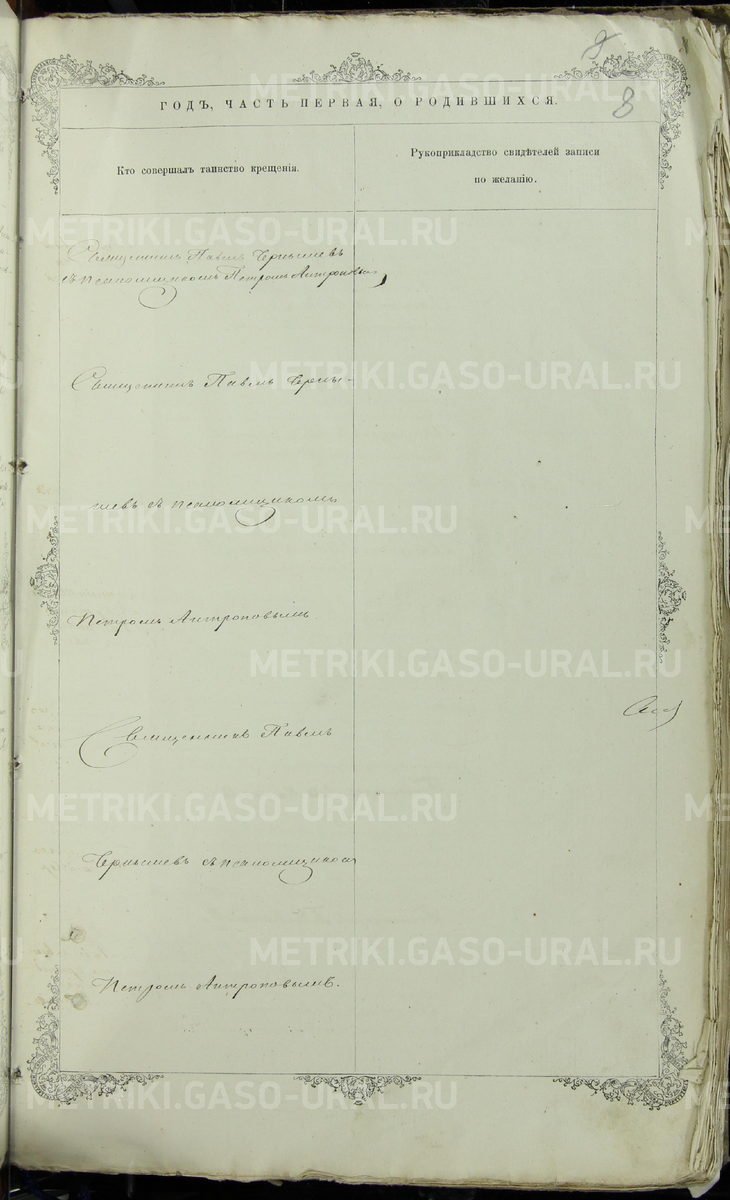 8
ГОДЪ, ЧАСТЬ ПЕРВАЯ, О РОДИВШИХСЯ.
Кто совершалъ таинство крещенія.
Рукоприкладство свидѣтелей записи
по желанію.
Священникъ Павелъ Чернышевъ
съ псаломщикомъ Петромъ Антроповым
Священникъ Павелъ Черны-
шевъ съ псаломщикомъ
Петромъ Антроповымъ
Священникъ Павелъ
Чернышевъ съ псаломщиком
Петромъ Антроповымъ.
METRIKI.GASO-URAL.RU
METRIKI.GASO-URAL.RU
METRIKI.GASO-URAL.RU
METRIKI.GASO-URAL.RU
METRIKI.GASO-URAL.RU
METRIKI.GASO-URAL.RU
METRIKI.GASO-URAL.RU
METRIKI.GASO-URAL.RU